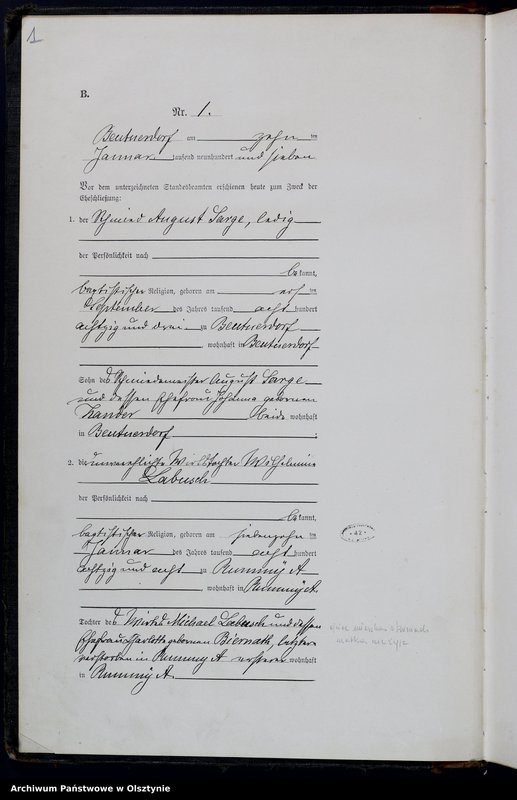 1
B.
Nr. 1.
Beutnerdorf am zehn ten
Januar tausend neunhundert und sieben
Vor dem unterzeichneten Standesbeamten erschienen heute zum Zweck der
Eheschließung:
1. der Schmied August Sarge, ledig
der Persönlichkeit nach
be kannt,
baptistischer Religion, geboren am ten
September des Jahres tausend acht hundert
achtzig und drei zu Beutnerdorf
, wohnhaft in Beutnerdorf
Sohn des Schmiedemeister August Sarge
und dessen Ehefrau Johanna geborenen
Zander beide wohnhaft
in Beutnerdorf .
2. die unverehelichte Wirtstochter Wilhelmine
Labusch
der Persönlichkeit nach
be kannt,
baptistischer Religion, geboren am siebenzehn ten
Januar des Jahres tausend acht hundert
achtzig und acht zu Rummy A
, wohnhaft in Rummy A.
Tochter des Wirths Michael Labusch und dessen
Ehefrau Charlotte geborenen Biernath, letztere
verstorben in Rummy A ersterer wohnhaft
in Rummy A
42
Archiwum Państwowe w Olsztynie